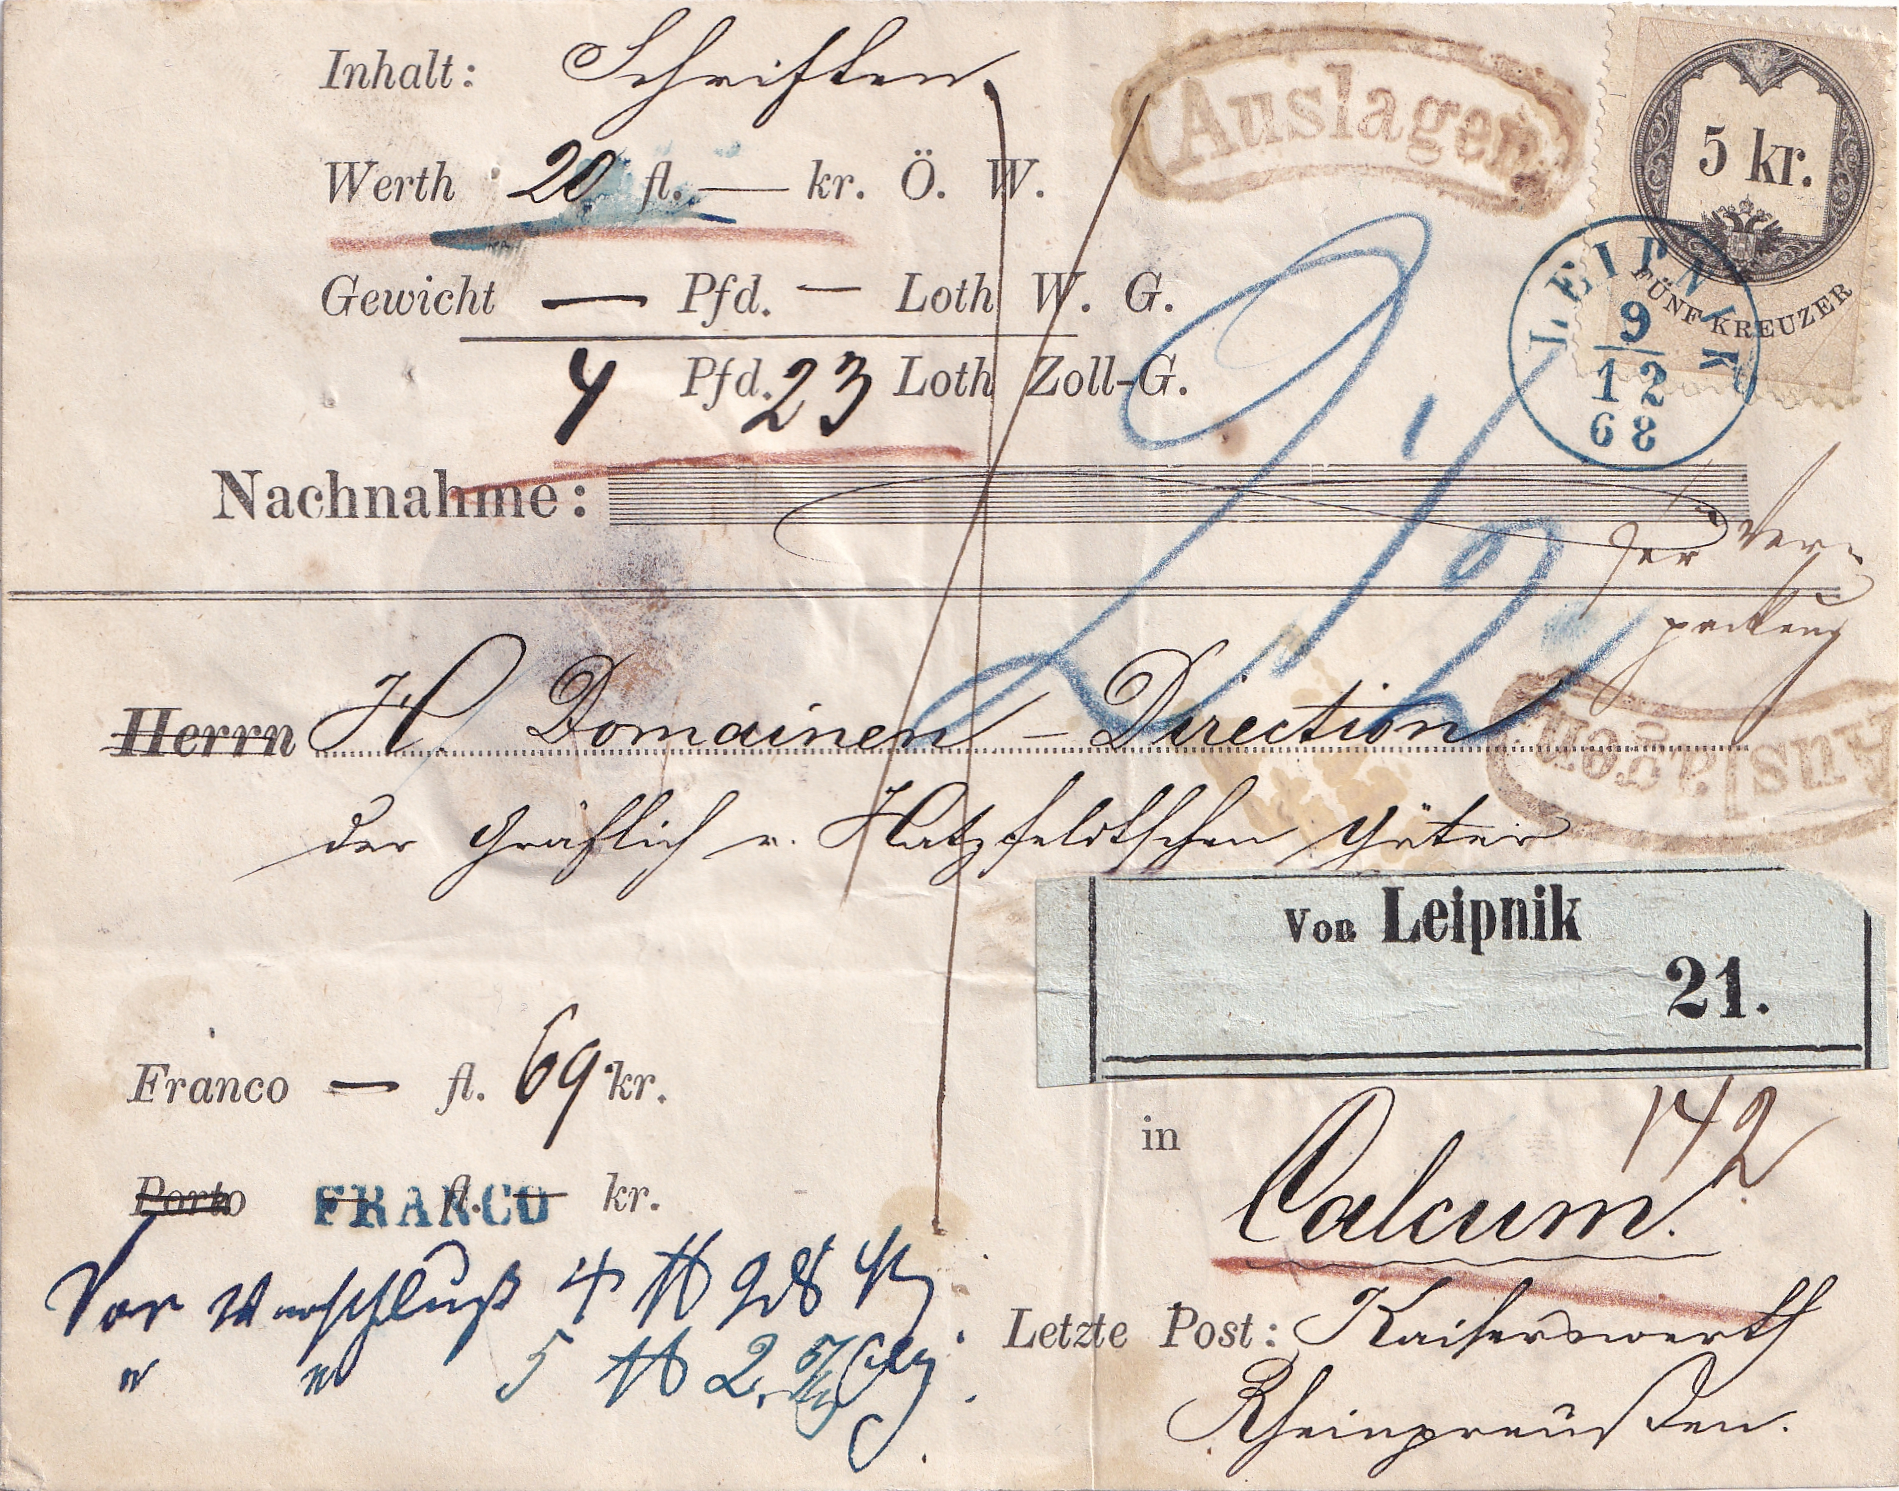 Inhalt: Schriften
Auslagen
5 kr.
FÜNF KREUZER
Werth 20 fl. — kr. Ö. W.
Gewicht — Pfd. — Loth W. G.
4 Pfd. 23 Loth Zoll-G.
LEIPNIK
9
12
68
Nachnahme:
Herrn H. Domainen-Direction
der Gräflich v. Hatzfeldtschen Güter
Auslagen
Von Leipnik
21.
Franco — fl. 69 kr.
Porto fl. — kr.
FRANCO
in Calcum.
142
Vor Verschluß 4
" " 5
Letzte Post: Kaiserswerth
Rheinpreußen.